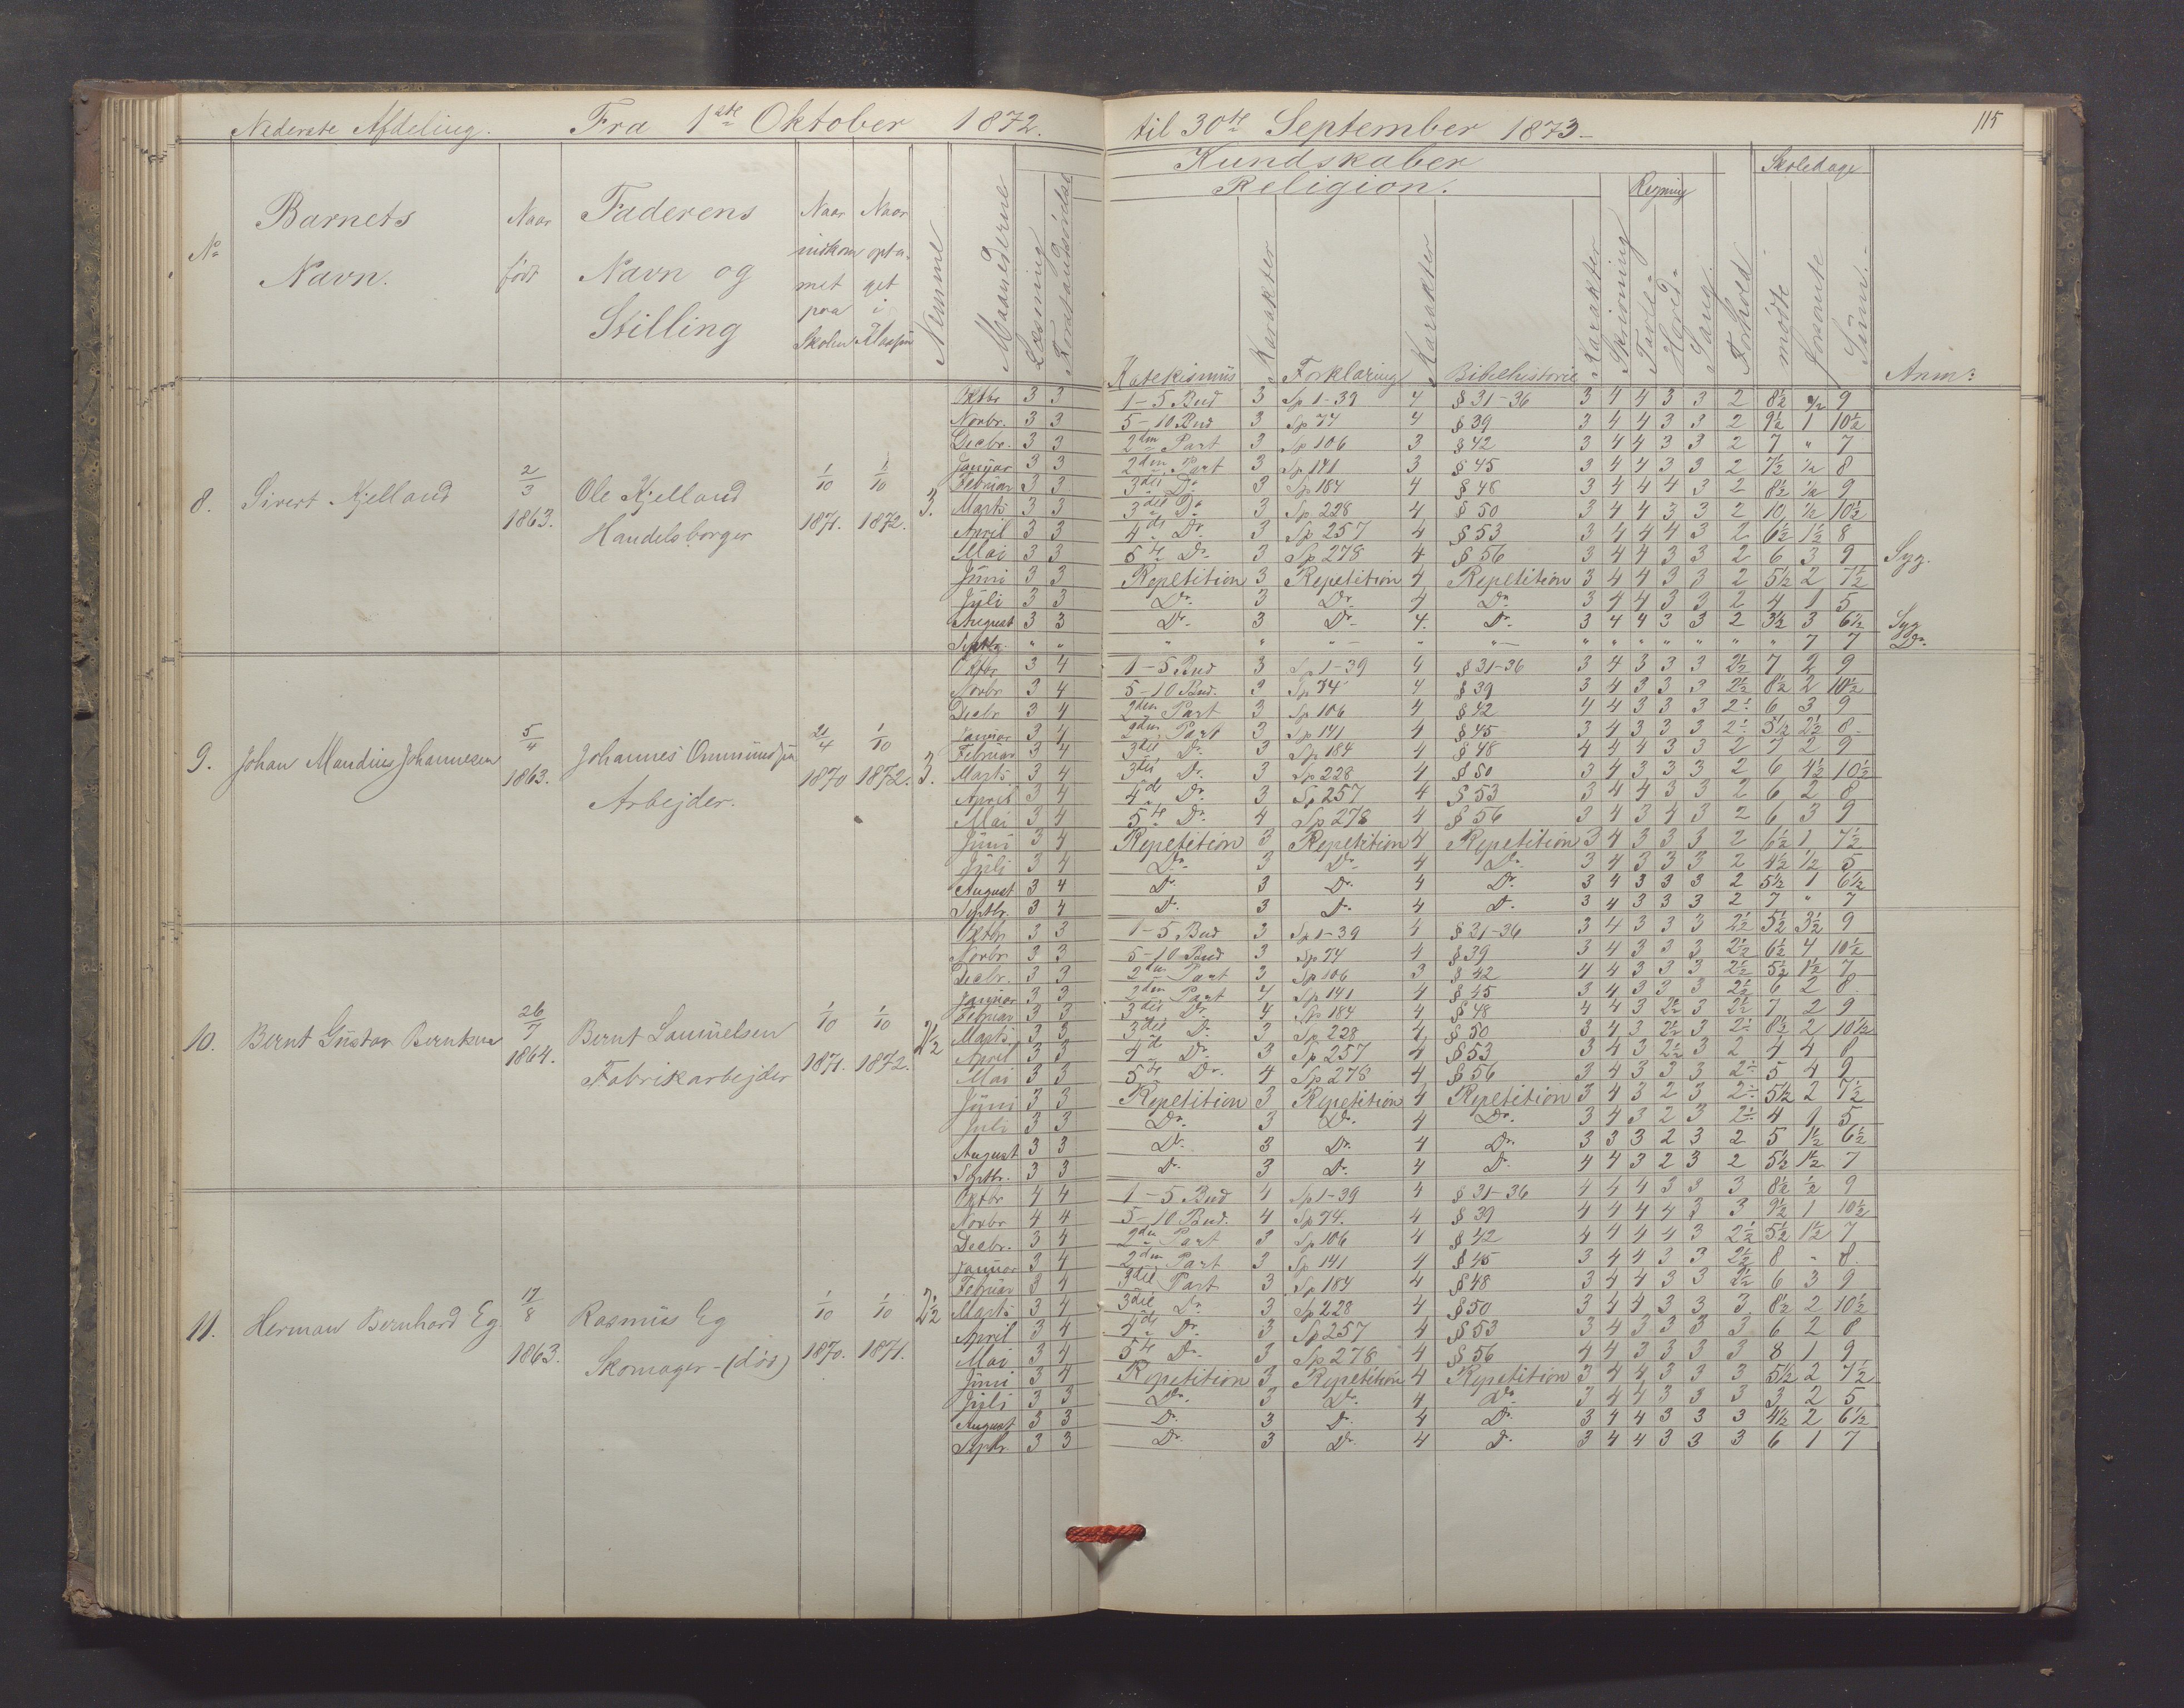 Nederste Afdeling. Fra 1ste Oktober 1872. til 30te September 1873 115
Kundskaber Skoledage
Religion. Regning
No Barnets Navn. Naar født Faderens Navn og Stilling Naar indkommet paa Skolen Naar optaget i Klassen Nemme Maanederne Læsning Forstandsøvelse Katekismus Karakter Forklaring Karakter Bibelhistorie Karakter Skrivning Tavle- Hoved- Sang. Forhold mødte forsømte Sum. Anm:
8. Sivert Kjelland 2/3 1863. Ole Kjelland Handelsborger 1/10 1871. 1/10 1872. 3.
Oktbr 3 3 1-5 Bud 3 Sp 1-39 4 § 31-36 3 4 4 3 3 2 8½ ½ 9
Novbr. 3 3 5-10 Bud 3 Sp 74 4 § 39 3 4 4 3 3 2 9½ 1 10½
Decbr. 3 3 2den Part 3 Sp 106 3 § 42 3 4 4 3 3 2 7 " 7
Januar 3 3 2den Part 3 Sp 141 3 § 45 3 4 4 3 3 2 7½ ½ 8
Februar 3 3 3die Do 3 Sp 184 4 § 48 3 4 4 4 3 2 8½ ½ 9
Marts 3 3 3die Do 3 Sp 228 4 § 50 3 4 4 3 3 2 10 ½ 10½
April 3 3 4de Do. 3 Sp 257 4 § 53 3 4 4 4 3 2 6½ 1½ 8
Mai 3 3 5te Do. 3 Sp 278 4 § 56 3 4 4 3 3 2 6 3 9 Syg.
Juni 3 3 Repetition 3 Repetition 4 Repetition 3 4 4 3 3 2 5½ 2 7½
Juli 3 3 Do. 3 Do. 4 Do. 3 4 4 3 3 2 4 1 5
August 3 3 Do. 3 Do. 4. Do. 3 4 4 3 3 2 3½ 3 6½ Syg
Septbr " " " " " " " " " " " " " " 7 7 Do.
9. Johan Mandius Johannesen 5/4 1863. Johannes Ommundsen Arbejder. 21/4 1870 1/10 1872. 3.
Oktbr 3 4 1-5 Bud 3 Sp 1-39 4 § 31-36 3 4 3 3 3 2½ 7 2 9
Novbr 3 4 5-10 Bud. 3 Sp 74 4 § 39 3 4 3 3 3 2½ 8½ 2 10½
Decbr 3 4 2den Part 3 Sp 106 4 § 42 4 4 3 3 3 2÷ 6 3 9
Januar 3 4 2den Part 3 Sp 141 4 § 45 3 4 3 3 3 2÷ 5½ 2½ 8.
Februar 3 4 3die Do. 3 Sp 184 4 § 48 4 4 4 3 3 2 7 2 9
Marts 3 4 3die Do. 3 Sp 228 4 § 50 3 4 3 3 3 2 6 4½ 10½
April 3 4 4de Do. 3 Sp 257 4 § 53 3 4 4 3 3 2 6 2 8
Mai 3 4 5te Do. 4 Sp 278 4 § 56 3 4 3 4 3 2 6 3 9
Juni 3 4 Repetition 3 Repetition 4 Repetition 3 4 3 3 3 2 6½ 1 7½
Juli 3 4 Do. 3 Do. 4 Do. 3 4 3 3 3 2 4½ ½ 5
August 3 4 Do. 3 Do. 4 Do. 3 4 3 3 3 2 5½ 1 6½
Septbr. 3 4 Do. 3 Do. 4 Do. 3 4 3 3 3 2 7 " 7
10. Bernt Gustav Berntsen 26/7 1864. Bernt Samuelsen Fabrikarbejder 1/10 1871. 1/10 1872. 2½
Oktbr 3 3 1-5 Bud 3 Sp 1-39 4 § 31-36 3 4 3 3 3 2½ 5½ 3½ 9
Novbr 3 3 5-10 Bud 3 Sp 74 4 § 39 3 4 3 3 3 2½ 6½ 4 10½
Decbr. 3 3 2den Part 3 Sp 106 3 § 42 4 4 3 3 3 2½ 5½ 1½ 7
Januar 3 3 2den Part 4 Sp 141 4 § 45 3 4 3 3 3 2½ 6 2 8.
Februar 3 3 3die Do. 4 Sp 184 4 § 48 4 4 3 2½ 3 2½ 7 2 9
Marts 3 3 3die Do. 3 Sp 228 4 § 50 3 4 3 2½ 3 2÷ 8½ 2 10½
April 3 3 4de Do. 3 Sp 257 4 § 53 3 4 3 2½ 3 2 4 4 8
Mai 3 3 5te Do. 4 Sp 278 4 § 56 3 4 3 3 3 2÷ 5 4 9
Juni 3 3 Repetition 3 Repetition 4 Repetition 3 4 3 2 3 2÷ 5½ 2 7½
Juli 3 3 Do. 3 Do. 4 Do. 3 4 3 2 3 2÷ 4 1 5
August 3 3 Do. 3 Do. 4 Do. 3 3 3 2 3 2 5 1½ 6½
Septbr. 3 3 Do. 3 Do. 4 Do. 4 4 3 2 3 2 5½ 1½ 7
11. Herman Bernhard Eg. 17/8 1863. Rasmus Eg Skomager - (død) 1/10 1870. 1/10 1871. 2½
Oktbr 4 4 1-5 Bud 4 Sp 1-39 4 § 31-36 4 4 4 3 3 3 8½ ½ 9
Novbr 4 4 5-10 Bud. 4 Sp 74. 4 § 39 4 4 4 4 3 3 9½ 1 10½
Decbr. 3 4 2den Part 3 Sp 106 4 § 42 4 4 4 4 3 2½ 5½ 1½ 7
Januar 3 4 2den Part 3 Sp 141 4 § 45 3 4 4 3 3 2½ 8 " 8.
Februar 3 4 3die Part 3 Sp 184 4 § 48 3 4 4 3 3 2½ 6 3 9
Marts 3 4 3die Do. 3 Sp 228 4 § 50 3 4 4 3 3 3 8½ 2 10½
April 3 4 4de Do. 3 Sp 257 4 § 53 3 4 3 3 3 3 6 2 8
Mai 3 4 5te Do. 3 Sp 278 4 § 56 4 4 3 3 3 3 8 1 9
Juni 3 4 Repetition 3 Repetition 4 Repetition 3 4 4 3 3 3 5½ 2 7½
Juli 3 3 Do. 3 Do. 4 Do. 3 4 4 3 3 3 3 2 5
August 3 3 Do. 3 Do. 4 Do. 3 4 4 3 3 3 4½ 2 6½
Septbr. 3 3 Do. 3 Do. 4 Do. 3 4 4 3 3 3 6 1 7